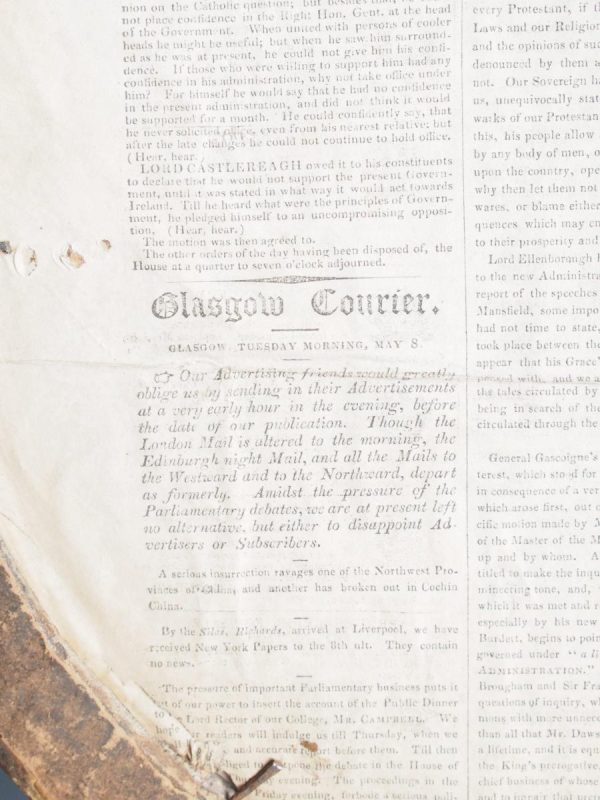 nion on the Catholic question; but besides that, he
not place confidence in the Right Hon. Gent. at the head
of the Government. When united with persons of cooler
heads he might be useful; but when he saw him surround-
ed as he was at present, he could not give him his confi-
dence. If those who were willing to support him had any
confidence in his administration, why not take office under
him? For himself he would say that he had no confidence
in the present administration, and did not think it would
be supported for a month. He could confidently say, that
he never solicited office, even from his nearest relative; but
after the late changes he could not continue to hold office.
(Hear, hear.)
LORD CASTLEREAGH owed it to his constituents
to declare that he would not support the present Govern-
ment, until it was stated in what way it would act towards
Ireland. Till he heard what were the principles of Govern-
ment, he pledged himself to an uncompromising opposi-
tion. (Hear, hear.)
The motion was then agreed to.
The other orders of the day having been disposed of, the
House at a quarter to seven o'clock adjourned.
Glasgow Courier.
GLASGOW, TUESDAY MORNING, MAY 8.
☞ Our Advertising friends would greatly
oblige us by sending in their Advertisements
at a very early hour in the evening, before
the date of our publication. Though the
London Mail is altered to the morning, the
Edinburgh night Mail, and all the Mails to
the Westward and to the Northward, depart
as formerly. Amidst the pressure of the
Parliamentary debates, we are at present left
no alternative, but either to disappoint Ad-
vertisers or Subscribers.
A serious insurrection ravages one of the Northwest Pro-
vinces of China, and another has broken out in Cochin
China.
By the Silas Richards, arrived at Liverpool, we have
received New York Papers to the 8th ult. They contain
no news.
The pressure of important Parliamentary business puts it
out of our power to insert the account of the Public Dinner
to Lord Rector of our College, MR. CAMPBELL. We
hope our readers will indulge us till Thursday, when we
and accurate report before them. Till then
postpone the debate in the House of
evening. The proceedings in the
Friday evening, forbode a serious poli-
every Protestant, if th
Laws and our Religion
and the opinions of suc
denounced by them a
not. Our Sovereign ha
us, unequivocally stat
warks of our Protestan
this, his people allow
by any body of men, o
upon the country, ope
why then let them not
wares, or blame either
quences which may en
to their prosperity and
Lord Ellenborough h
to the new Administra
report of the speeches
Mansfield, some impo
had not time to state,
took place between the
appear that his Grace'
pressed with, and we a
the tales circulated by
being in search of the
circulated through the
General Gascoigne's
terest, which stood for
in consequence of a ver
which arose first, out o
cific motion made by M
of the Master of the M
up and by whom. A
titled to make the inqu
mincering tone, and,
which it was met and r
especially by his new
Burdett, begins to poin
governed under "a B
ADMINISTRATION."
Brougham and Sir Fra
questions of inquiry, wh
mons with more unnece
than all that Mr. Daws
a lifetime, and it is equa
the King's prerogative,
chief business of whose
and to repair that pre